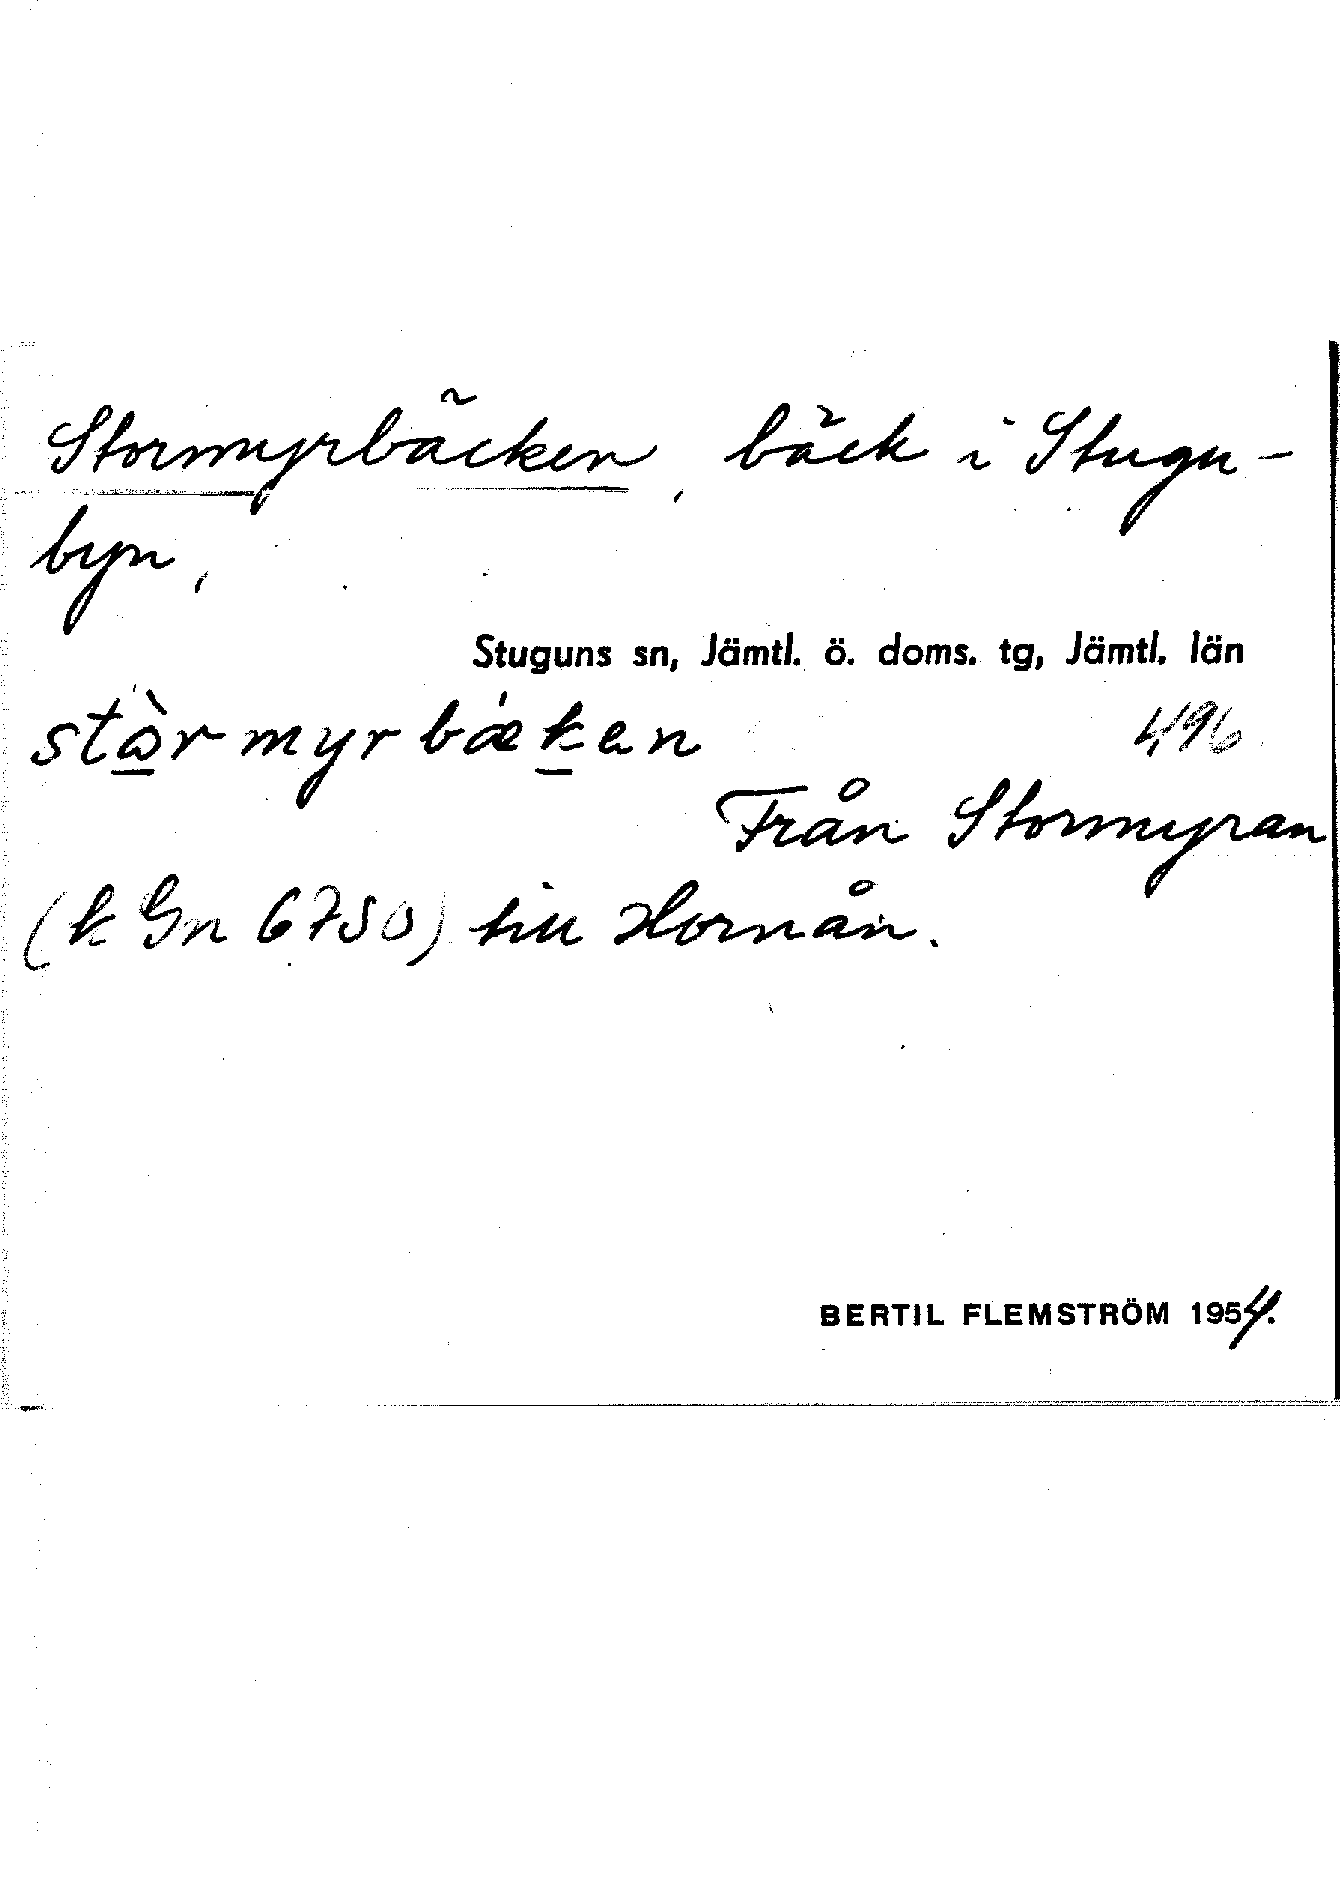 Stormyrbäcken, bäck i Stugu-
byn,
Stuguns sn, Jämtl. ö. doms. tg, Jämtl. län
stòrmyrbæken 496
Från Stormyran
(k Gn 6750) till Hornån.
BERTIL FLEMSTRÖM 1954.